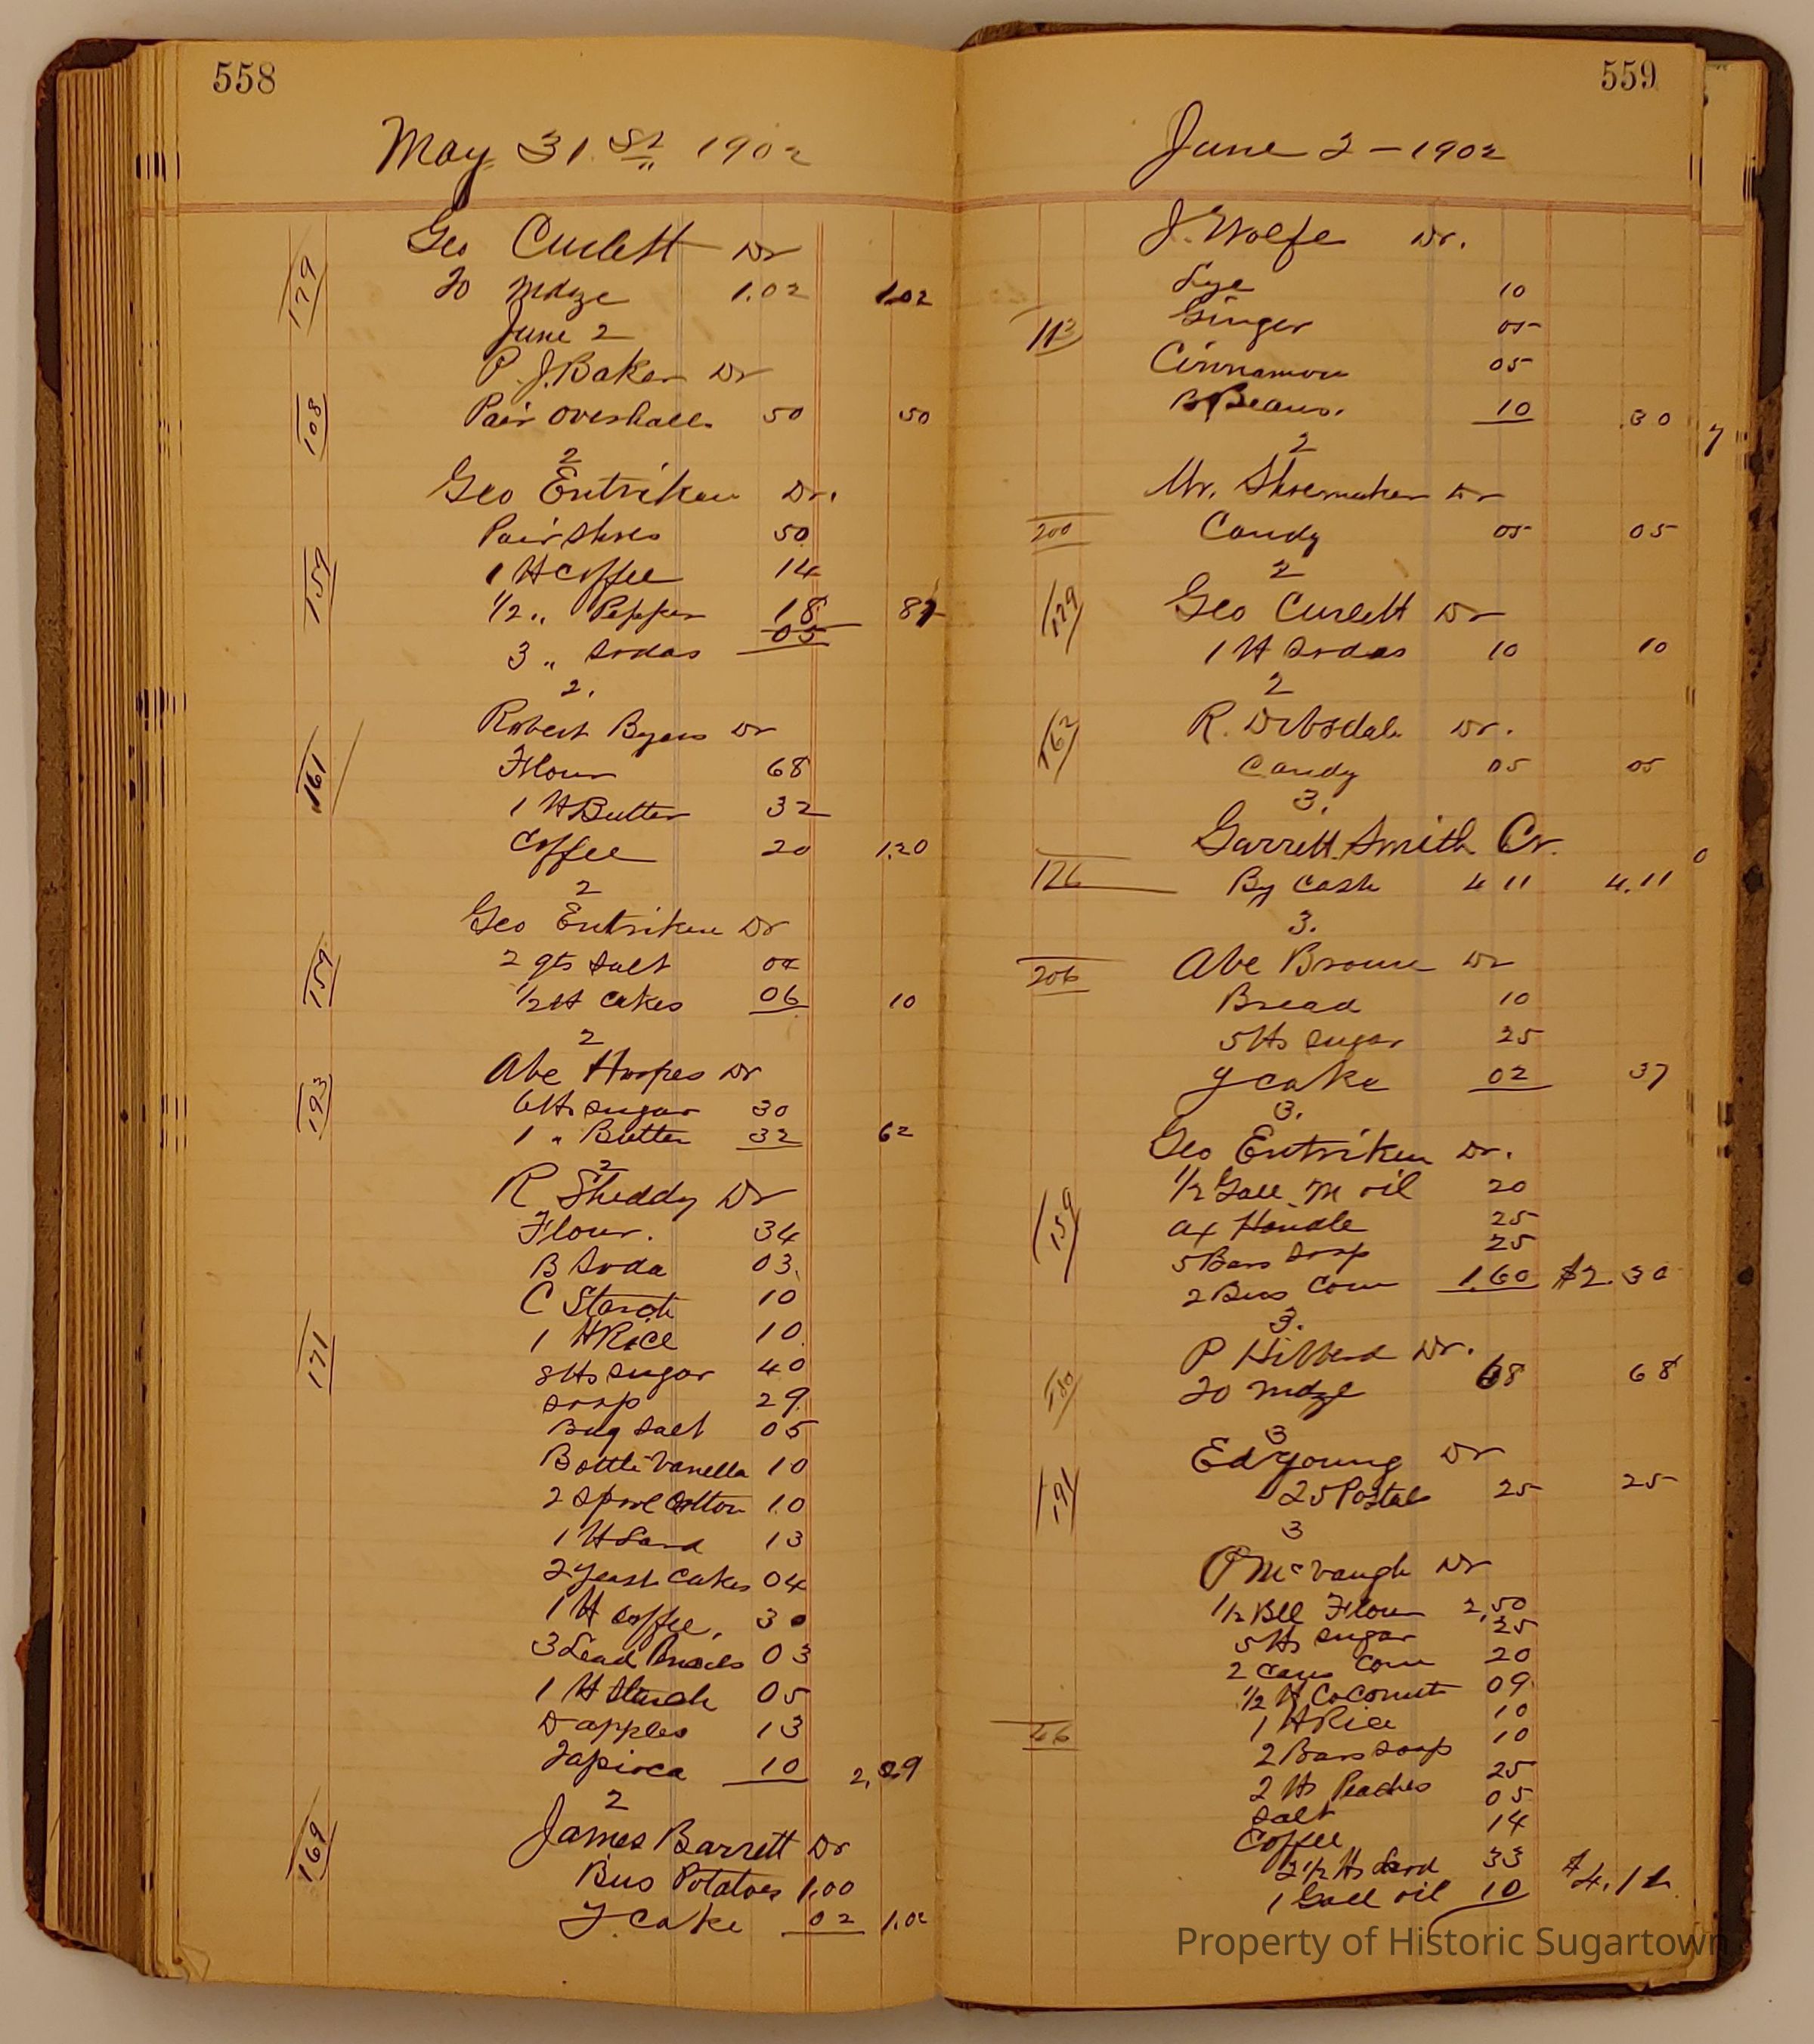 558
May 31 St 1902
Geo Curlett Dr
179
To Mdze 1.02 1.02
June 2
P. J. Baker Dr
108
Pair Overhalls 50 50
2
Geo Entriken Dr.
Pair Shoes 50
159
1 lb Coffee 14
1/2 " Pepper 18 87
3 " Sodas 05
2.
Robert Byers Dr
161
Flour 68
1 lb Butter 32
Coffee 20 1.20
2
Geo Entriken Dr
159
2 qts Salt 04
1/2 lb Cakes 06 10
2
Abe Hoopes Dr
193
6 lbs Sugar 30
1 " Butter 32 62
2
R Sheddy Dr
Flour. 34
B Soda 03
C Starch 10
171
1 lb Rice 10
8 lbs Sugar 40
Soap 29
Bag Salt 05
Bottle Vanella 10
2 Spool Cotton 10
1 lb Lard 13
2 Yeast Cakes 04
1 lb Coffee. 30
3 Lead Pencils 03
1 lb Starch 05
D apples 13
Tapioca 10 2,29
2
James Barrett Dr
169
Bus Potatoes 1.00
Y. Cake 02 1.02
559
June 2 - 1902
J. Wolfe Dr.
Lye 10
113
Ginger 05
Cinnamon 05
B Beans. 10 .30
2
Mr. Shoemaker Dr
200
Candy 05 05
2
179
Geo Curlett Dr
1 lb Sodas 10 10
2
162
R. Drbsdale Dr.
Candy 05 05
3.
Garrett Smith Cr.
126
By Cash 4 11 4.11
3.
206
Abe Brown Dr
Bread 10
5 lbs Sugar 25
Y Cake 02 37
3.
Geo Entriken Dr.
159
1/2 Gall M oil 20
ax Handle 25
5 Bars Soap 25
2 Bus Corn 1.60 $2.30
3.
P Hibberd Dr.
180
To Mdze 68 68
3
Ed Young Dr
191
25 Postals 25 25
3
P McVaugh Dr
1/2 Bbl Flour 2,50
5 lbs Sugar 25
2 Cans Corn 20
1/2 lb CoConut 09
1 lb Rice 10
46
2 Bars Soap 10
2 lbs Peaches 25
Salt 05
Coffee 14
2 1/2 lbs Lard 33
1 Gall oil 10 $4.11
Property of Historic Sugartown